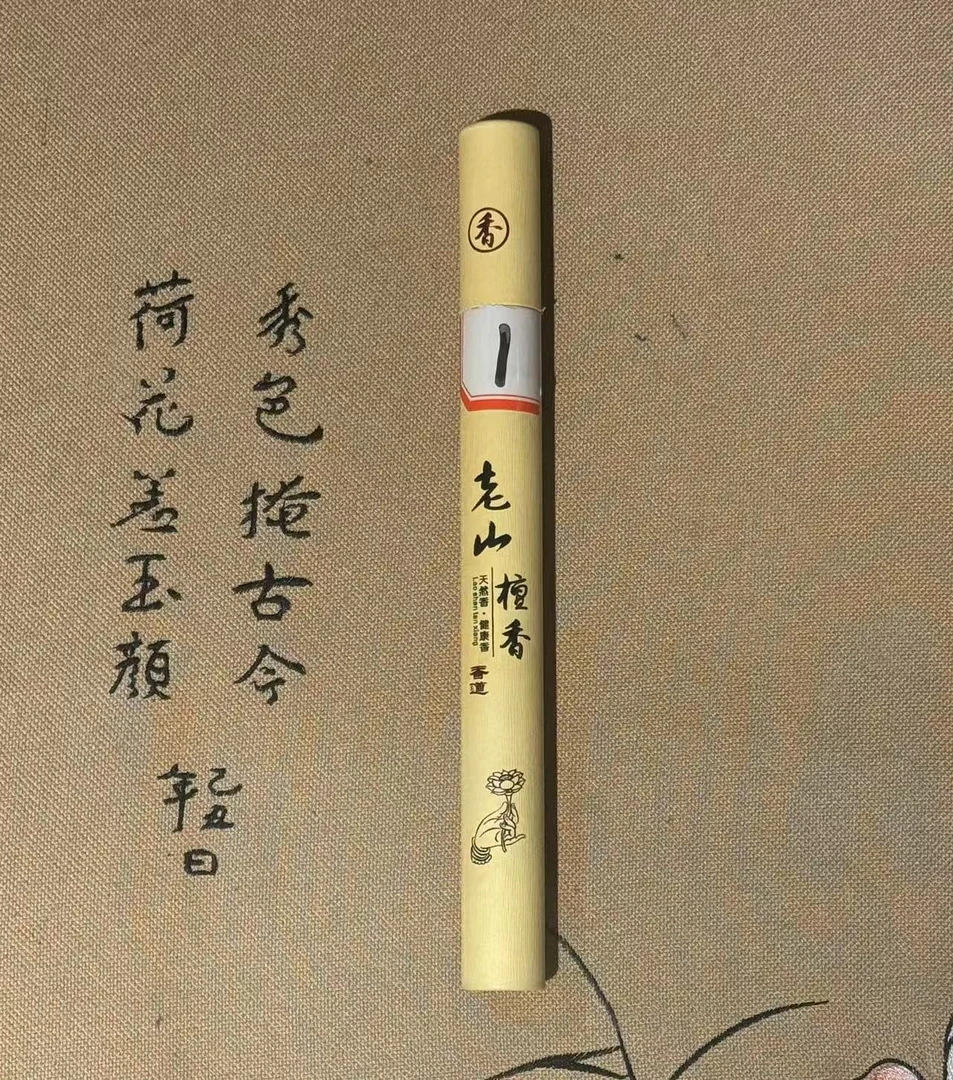 秀色掩古今
荷花羞玉顔
己丑
年
日
香
1
老山
檀香
天然香·健康香
Lao shan tan xiang
香道